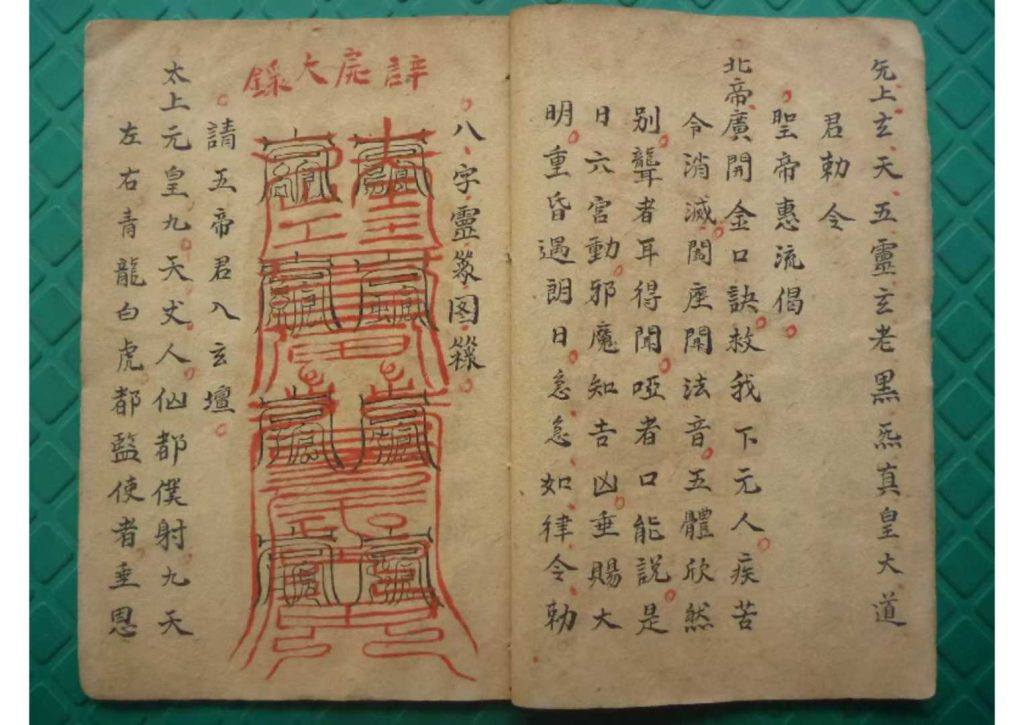 炁上玄天五靈玄老黑炁真皇大道
君勅令
聖帝惠流倡
北帝廣開金口訣救我下元人疾苦
令消滅閣座聞法音五體欣然
別聾者耳得聞啞者口能說是
日六宮動邪魔知吉凶垂賜大
明重昏遇朗日急急如律令勅
八字靈篆图籙
大錄
請五帝君入玄壇
太上元皇九天丈人仙都僕射九天
左右青龍白虎都監使者垂恩